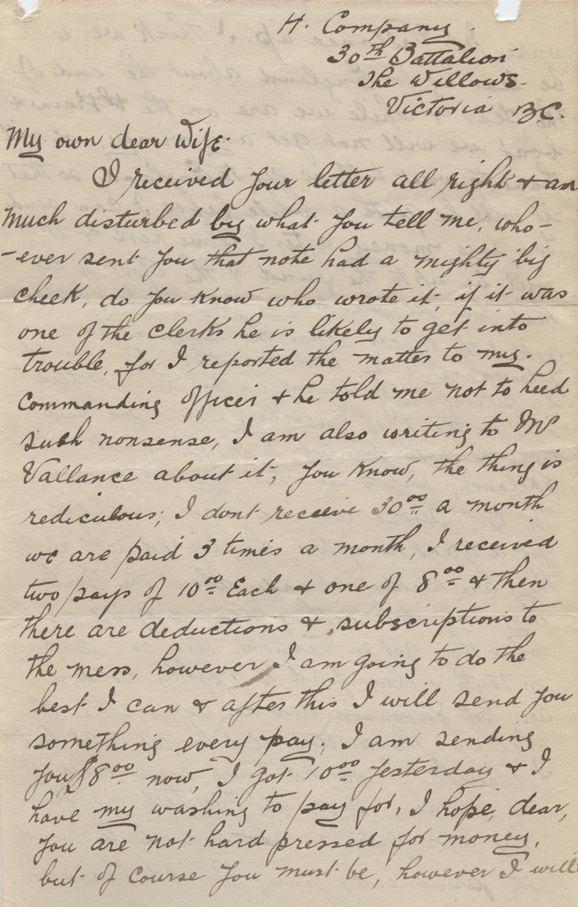 H. Company
30th Battalion
The Willows.
Victoria B.C.
My own dear Wife.
I received your letter all right & am
much disturbed by what you tell me, who-
-ever sent you that note had a mighty big
cheek, do you know who wrote it, if it was
one of the clerks he is likely to get into
trouble, for I reported the matter to my.
Commanding officer & he told me not to heed
such nonsense, I am also writing to Mr
Vallance about it, you know, the thing is
rediculous; I dont receive 30.00 a month
we are paid 3 times a month, I received
two pays of 10.00 Each & one of 8.00 & then
there are deductions & subscriptions to
the mess, however I am going to do the
best I can & after this I will send you
something every pay; I am sending
you $8.00 now, I got 10.00 yesterday & I
have my washing to pay for, I hope, dear,
you are not hard pressed for money,
but of course you must be, however I will